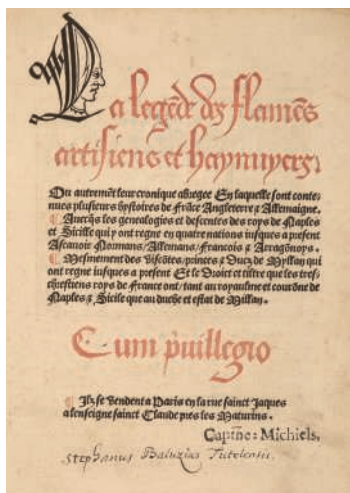 La legēde dēs flamēs
artisiens et haynuyers.
Ou autremēt leur cronique abꝛegee En laquelle sont conte-
nues plusieurs hystoires de Frāce Angleterre ⁊ Allemaigne.
¶ Auecq̄s les genealogies et descentes des roys de Naples
et Sicille qui y ont regne en quatre nations iusques a present
Ascauoir Nomans/Allemans/Francois ⁊ Arragōnoys.
¶ Mesmement des Viscōtes/princes ⁊ Ducz de Myllan qui
ont regne iusques a present Et le Droict et tiltre que les tres-
chrestiens roys de France ont/tant au royaulme et courōne de
Naples ⁊ Sicile que au duche et estat de Millan.
Cum priuillegio
¶ Ilz se vendent a Paris en la rue sainct Jaques
a lenseigne sainct Claude pres les Maturins.
Captne: Michiels.
Stephanus Baluzius Tutelensis.